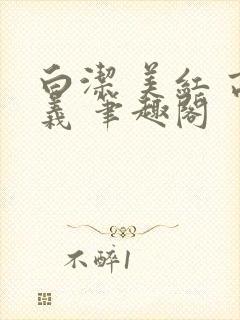 白潔 美紅 高
義 筆趣閣
不醉1